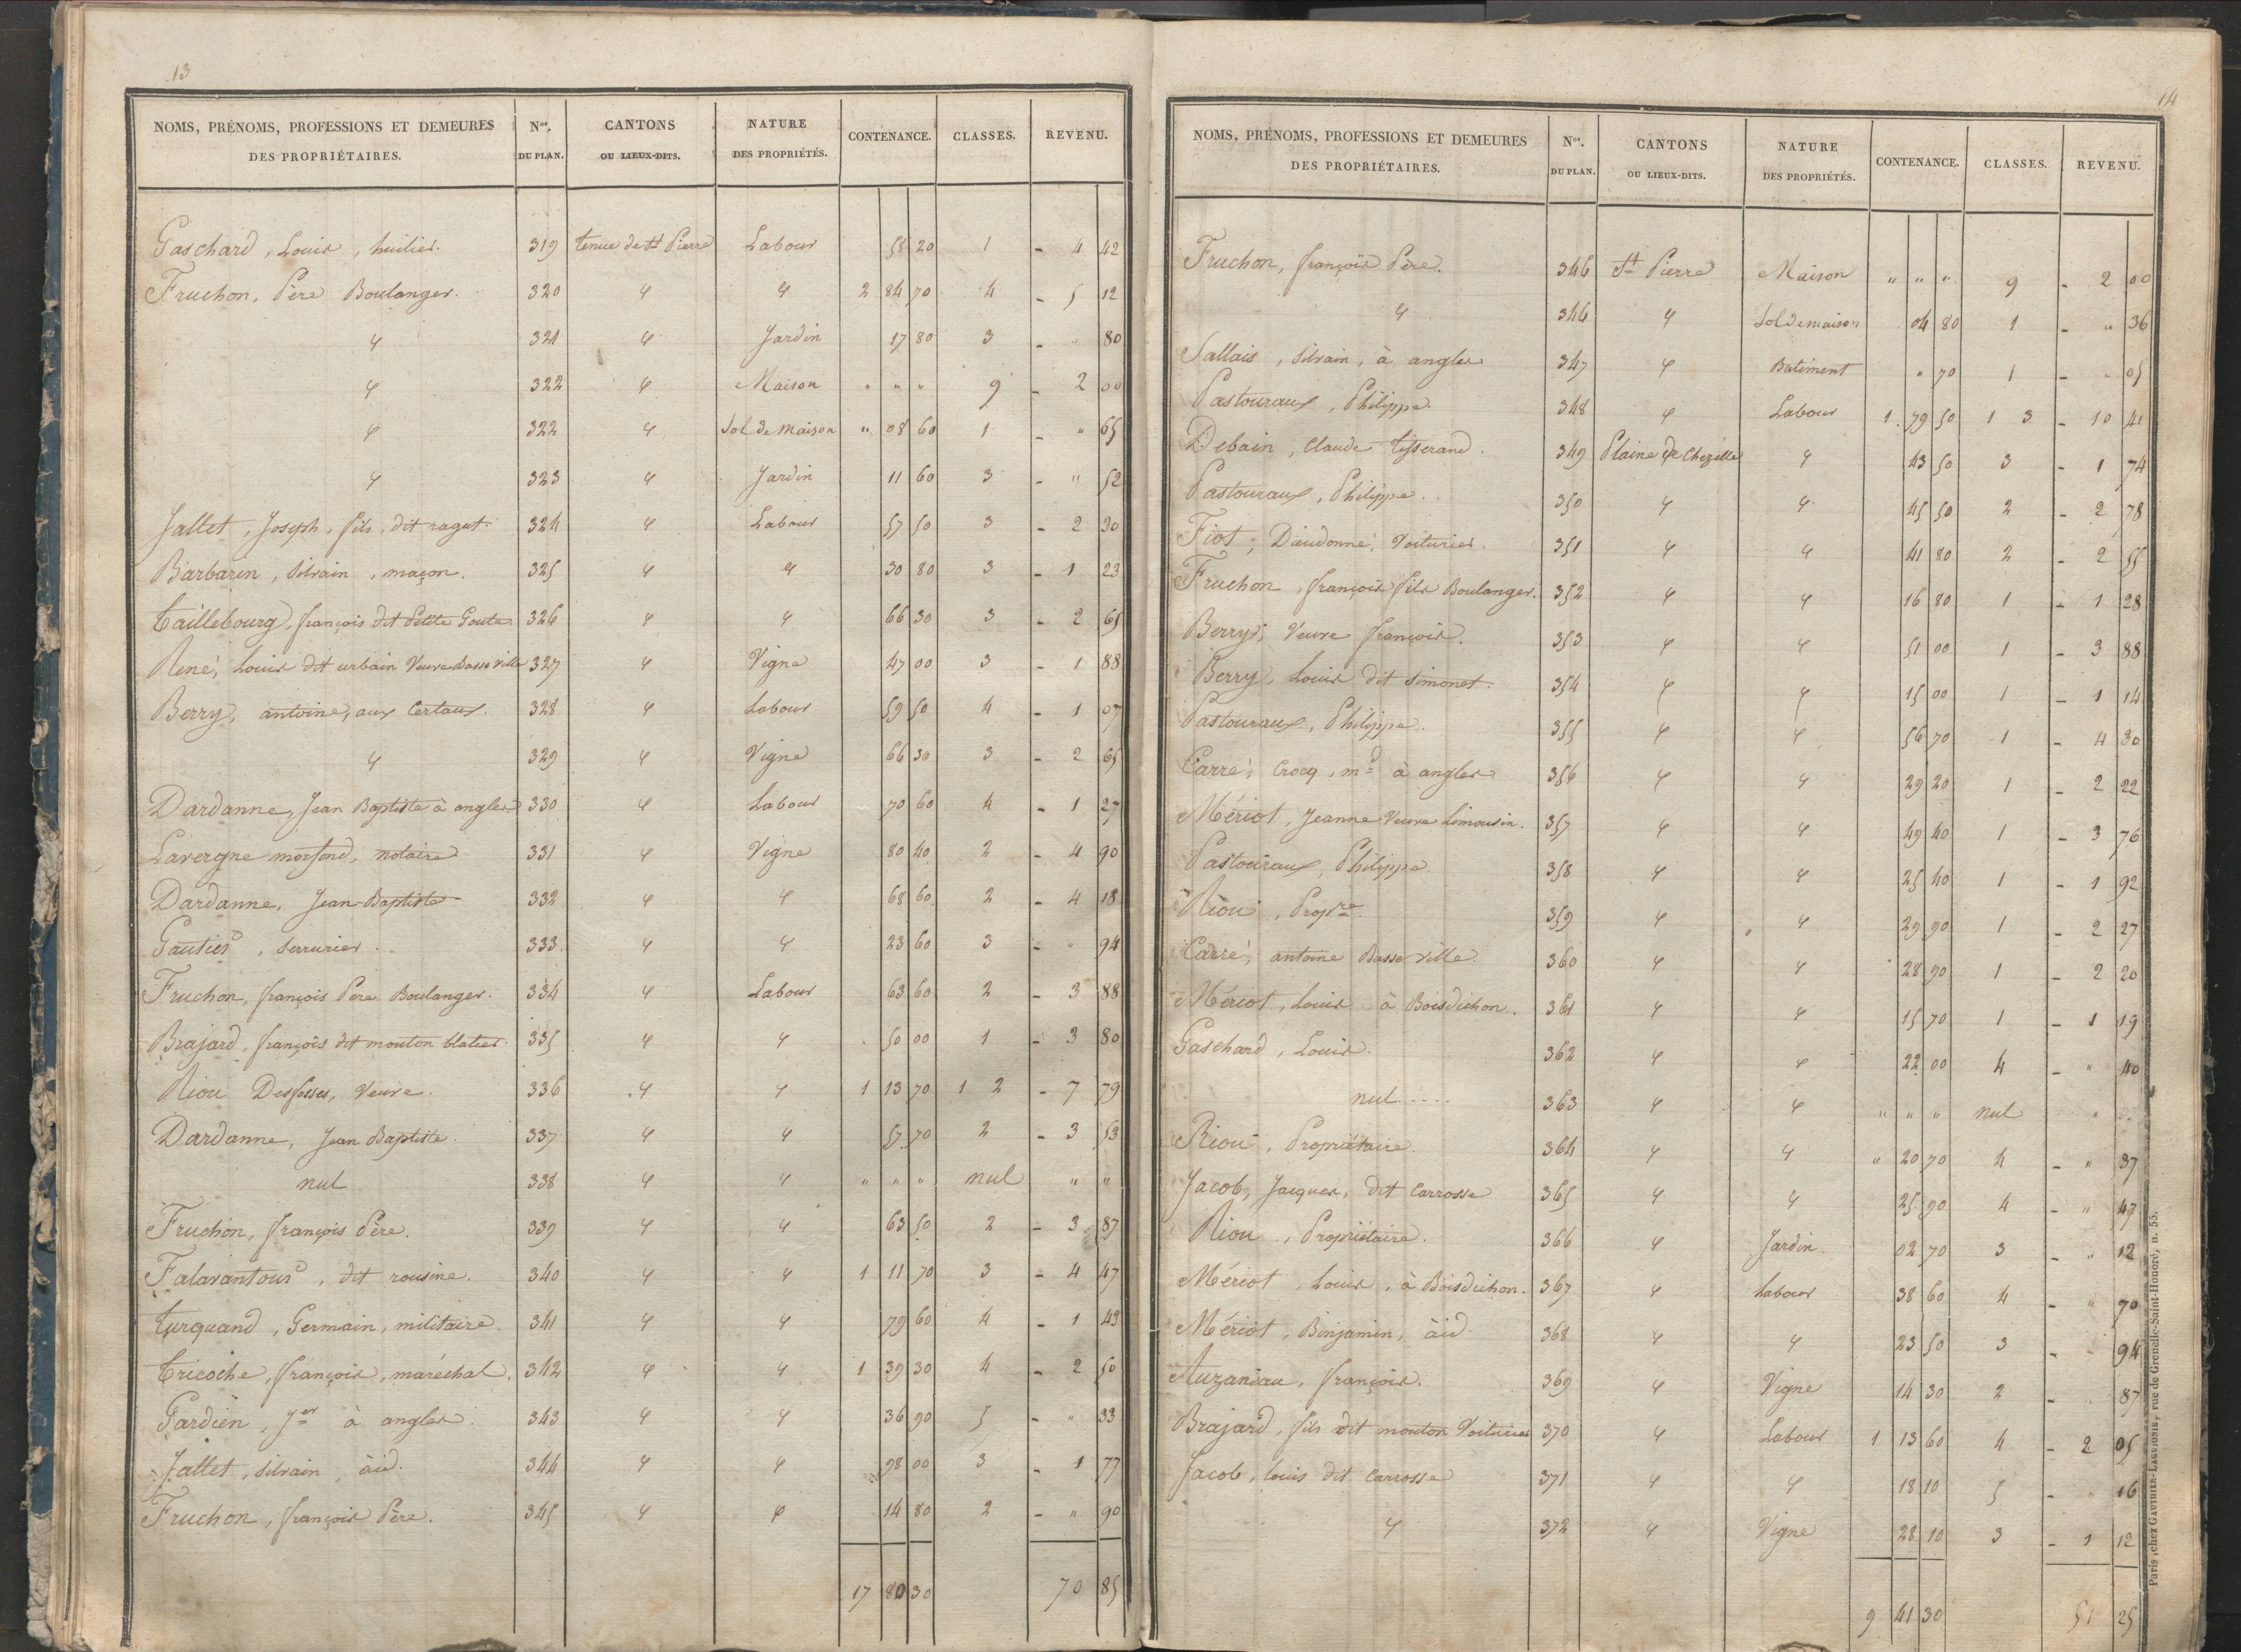 13
NOMS, PRÉNOMS, PROFESSIONS ET DEMEURES DES PROPRIÉTAIRES. Nos. DU PLAN. CANTONS OU LIEUX-DITS. NATURE DES PROPRIÉTÉS. CONTENANCE. CLASSES. REVENU.
Gaschard, Louis, huilier. 319 tenue de St Pierre Labour 58 20 1 - 4 42
Fruchon, Père Boulanger. 320 " " 2 84 70 4 - 5 12
" 321 " Jardin 17 80 3 - " 80
" 322 " Maison " " " 9 - 2 00
" 322 " Sol de Maison " 08 60 1 - " 65
" 323 " Jardin 11 60 3 - " 52
Jallet, Joseph, fils, dit ragut 324 " Labour 57 50 3 - 2 30
Barbarin, Silvain, maçon. 325 " " 30 80 3 - 1 23
Taillebourg, françois dit Petite Goute. 326 " " 66 30 3 - 2 65
René, Louis dit urbain Veuve Basse Ville 327 " Vigne 47 00 3 - 1 88
Berry, antoine, aux Certaux. 328 " Labour 59 50 4 - 1 07
" 329 " Vigne 66 30 3 - 2 65
Dardanne, Jean Baptiste à angles. 330 " Labour 70 60 4 - 1 27
Lavergne morfond, notaire 331 " Vigne 80 40 2 - 4 90
Dardanne, Jean-Baptiste 332 " " 68 60 2 - 4 18
Gautier, serrurier. 333 " " 23 60 3 - " 94
Fruchon, françois Père Boulanger. 334 " Labour 63 60 2 - 3 88
Brajard, françois dit mouton blatier 335 " " 50 00 1 - 3 80
Riou Desfosses, Veuve. 336 " " 1 13 70 1 2 - 7 79
Dardanne, Jean Baptiste. 337 " " 57 70 2 - 3 53
nul 338 " " " " " nul " "
Fruchon, françois Père. 339 " " 63 50 2 - 3 87
Falavantour, dit rousine. 340 " " 1 11 70 3 - 4 47
Turquand, Germain, militaire. 341 " " 79 60 4 - 1 43
Tricoche, françois, maréchal. 342 " " 1 39 30 4 - 2 50
Gardien, à angles. 343 " " 36 90 5 - " 33
Jallet, silvain, àid. 344 " " 98 00 3 - 1 77
Fruchon, françois Père. 345 " " 14 80 2 - " 90
17 80 30 70 85
14
NOMS, PRÉNOMS, PROFESSIONS ET DEMEURES DES PROPRIÉTAIRES. Nos. DU PLAN. CANTONS OU LIEUX-DITS. NATURE DES PROPRIÉTÉS. CONTENANCE. CLASSES. REVENU.
Fruchon, françois Père. 346 St Pierre Maison " " " 9 - 2 00
" 346 " Sol de maison 04 80 1 - " 36
Sallais, Silvain, à angles 347 " Batiment " 70 1 - " 05
Pastouraux, Philippe. 348 " Labour 1 79 50 1 3 - 10 41
Debain, Claude tisserand. 349 Plaine de Chezelle " 43 50 3 - 1 74
Pastouraux, Philippe. 350 " " 45 50 2 - 2 78
Fiot, Dieudonné, Voiturier. 351 " " 41 80 2 - 2 55
Fruchon, françois fils Boulanger. 352 " " 16 80 1 - 1 28
Berry, Veuve françois. 353 " " 51 00 1 - 3 88
Berry, Louis dit simonet. 354 " " 15 00 1 - 1 14
Pastouraux, Philippe. 355 " " 56 70 1 - 4 30
Carré, Crocq, md à angles 356 " " 29 20 1 - 2 22
Mériot, Jeanne Veuve Limousin. 357 " " 49 40 1 - 3 76
Pastouraux, Philippe 358 " " 25 40 1 - 1 92
Riou, Propre. 359 " " 29 90 1 - 2 27
Carré, antoine Basse Ville. 360 " " 28 90 1 - 2 20
Mériot, Louis à Boisdichon. 361 " " 15 70 1 - 1 19
Gaschard, Louis. 362 " " 22 00 4 - " 40
nul .... 363 " " " " " nul "
Riou, Propriétaire. 364 " " " 20 70 4 - " 37
Jacob, Jacques, dit Carrosse 365 " " 25 90 4 - " 47
Riou, Propriétaire. 366 " Jardin 02 70 3 - " 12
Mériot, Louis, à Boisdichon. 367 " Labour 38 60 4 - " 70
Mériot, Binjamin, àid. 368 " " 23 50 3 - " 94
Auzaneau, françois. 369 " Vigne 14 30 2 - " 87
Brajard, fils dit mouton Voiturier 370 " Labour 1 13 60 4 - 2 05
Jacob, louis dit Carrosse 371 " " 18 10 5 - " 16
" 372 " Vigne 28 10 3 - 1 12
9 41 30 51 25
Paris, chez GAUTHIER-LAGUIONIE, rue de Grenelle-Saint-Honoré, n. 55.